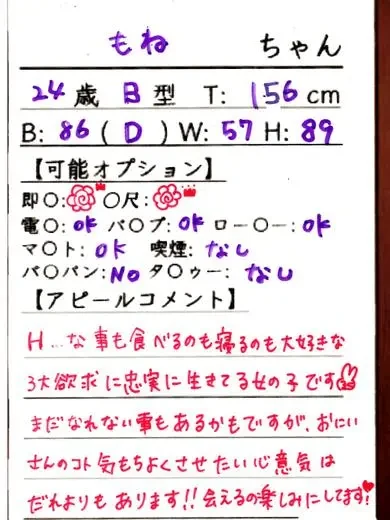 もね ちゃん
24歳 B型 T: 156cm
B: 86(D) W: 57 H: 89
【可能オプション】
即〇: 〇尺:
電〇: OK バ〇ブ: OK ロー〇ー: OK
マ〇ト: OK 喫煙: なし
パ〇パン: NO タ〇ゥー: なし
【アピールコメント】
H…な事も食べるのも寝るのも大好きな
3大欲求に忠実に生きてる女の子です
まだなれない事もあるかもですが、おにい
さんのコト気もちよくさせたい心意気は
だれよりもあります!!会えるの楽しみにしてます!